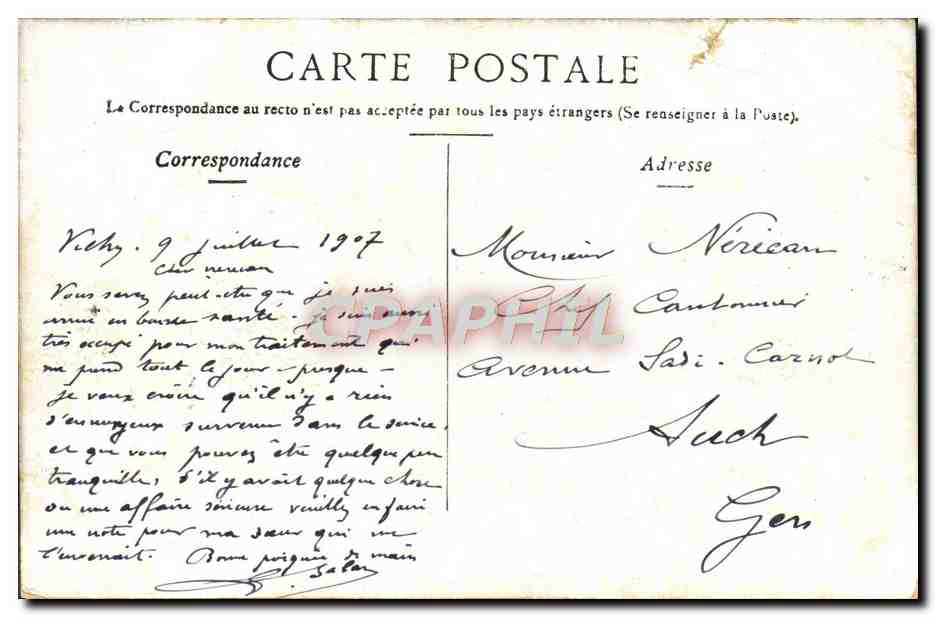 CARTE POSTALE
La Correspondance au recto n'est pas acceptée par tous les pays étrangers (Se renseigner à la Poste).
Correspondance
Adresse
Vichy. 9 juillet 1907
Cher nerican
Vous savez peut-être que je suis
arrivé en bonne santé. je suis aussi
très occupé pour mon traitement qui
me prend tout le jour - presque -
je veux croire qu'il n'y a rien
d'ennuyeux survenu dans le service,
et que vous pouvez être quelque peu
tranquille, S'il y avait quelque chose
ou une affaire sérieuse veuillez en faire
une note pour ma sœur qui me
l'enverrait. Bonne poignée de main
Monsieur Nérican
Chef Cantonnier
Avenue Sadi-Carnot
Auch
Gers
CPAPHIL